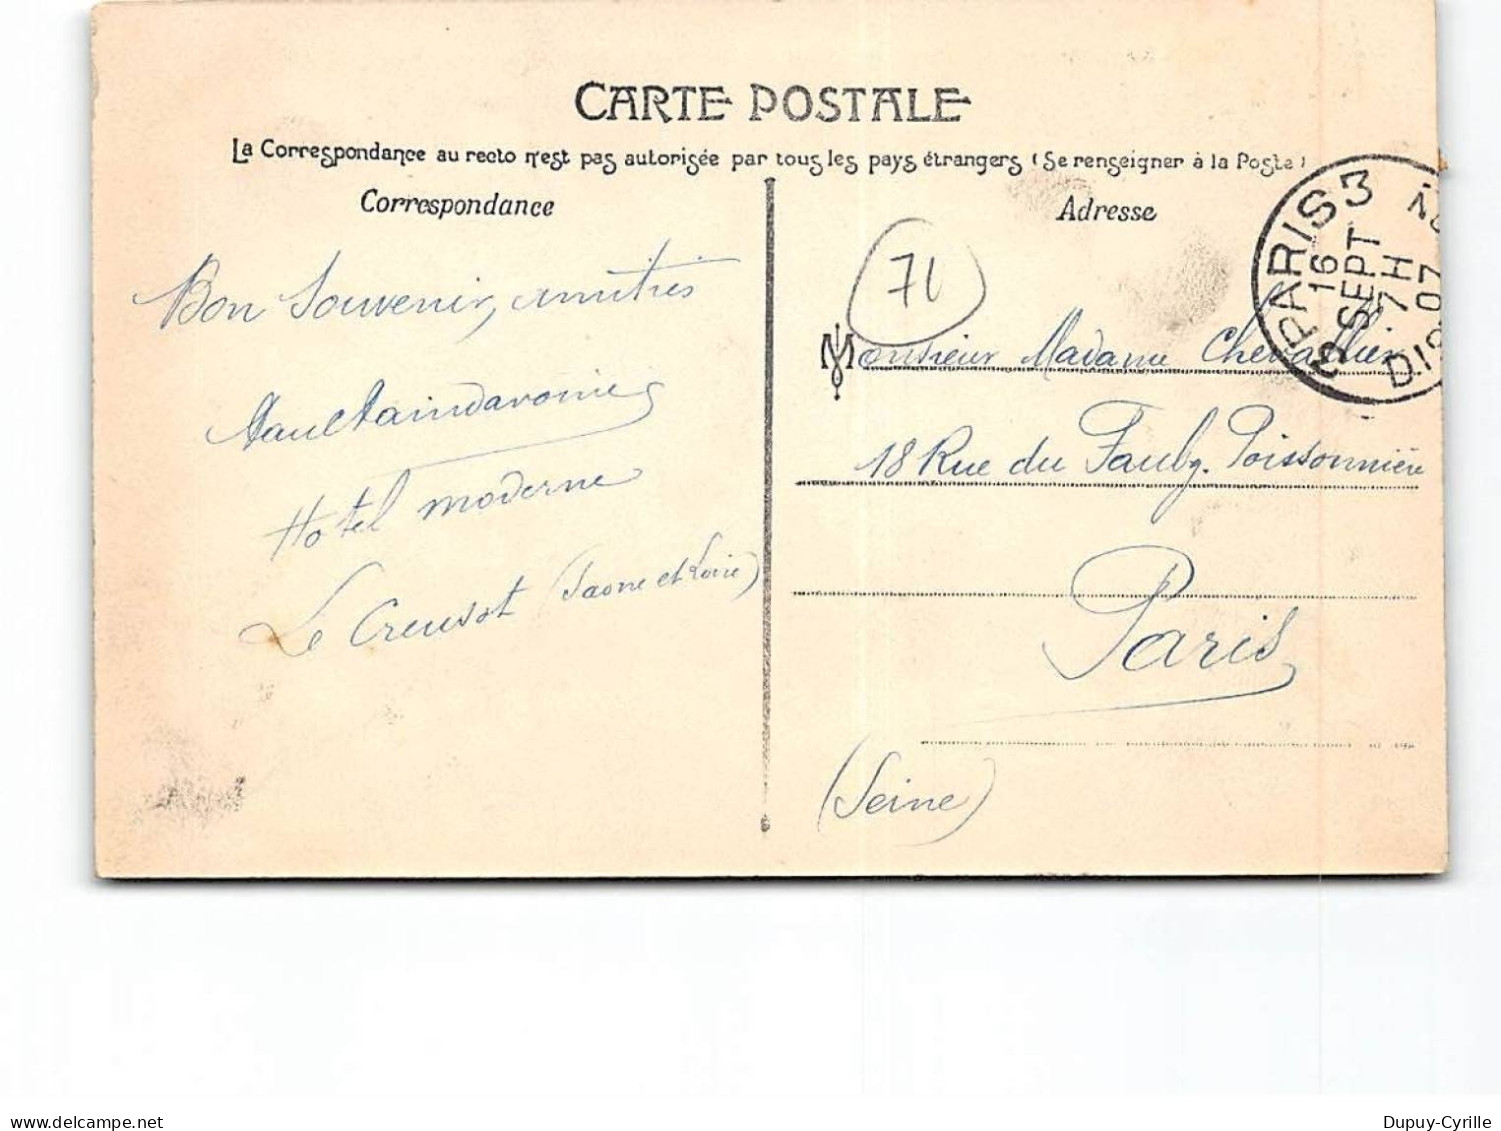 CARTE POSTALE
La Correspondance au recto n'est pas autorisée par tous les pays étrangers (Se renseigner à la Poste)
Correspondance
Adresse
Bon Souvenir, amitiés
Hotel moderne
Le Creusot (Saone et Loire)
71
Monsieur Madame Chevallier
18 Rue du Faubg. Poissonnière
Paris
(Seine)
PARIS 3
16
SEPT
7H
07
DIS
delcampe.net
Dupuy-Cyrille